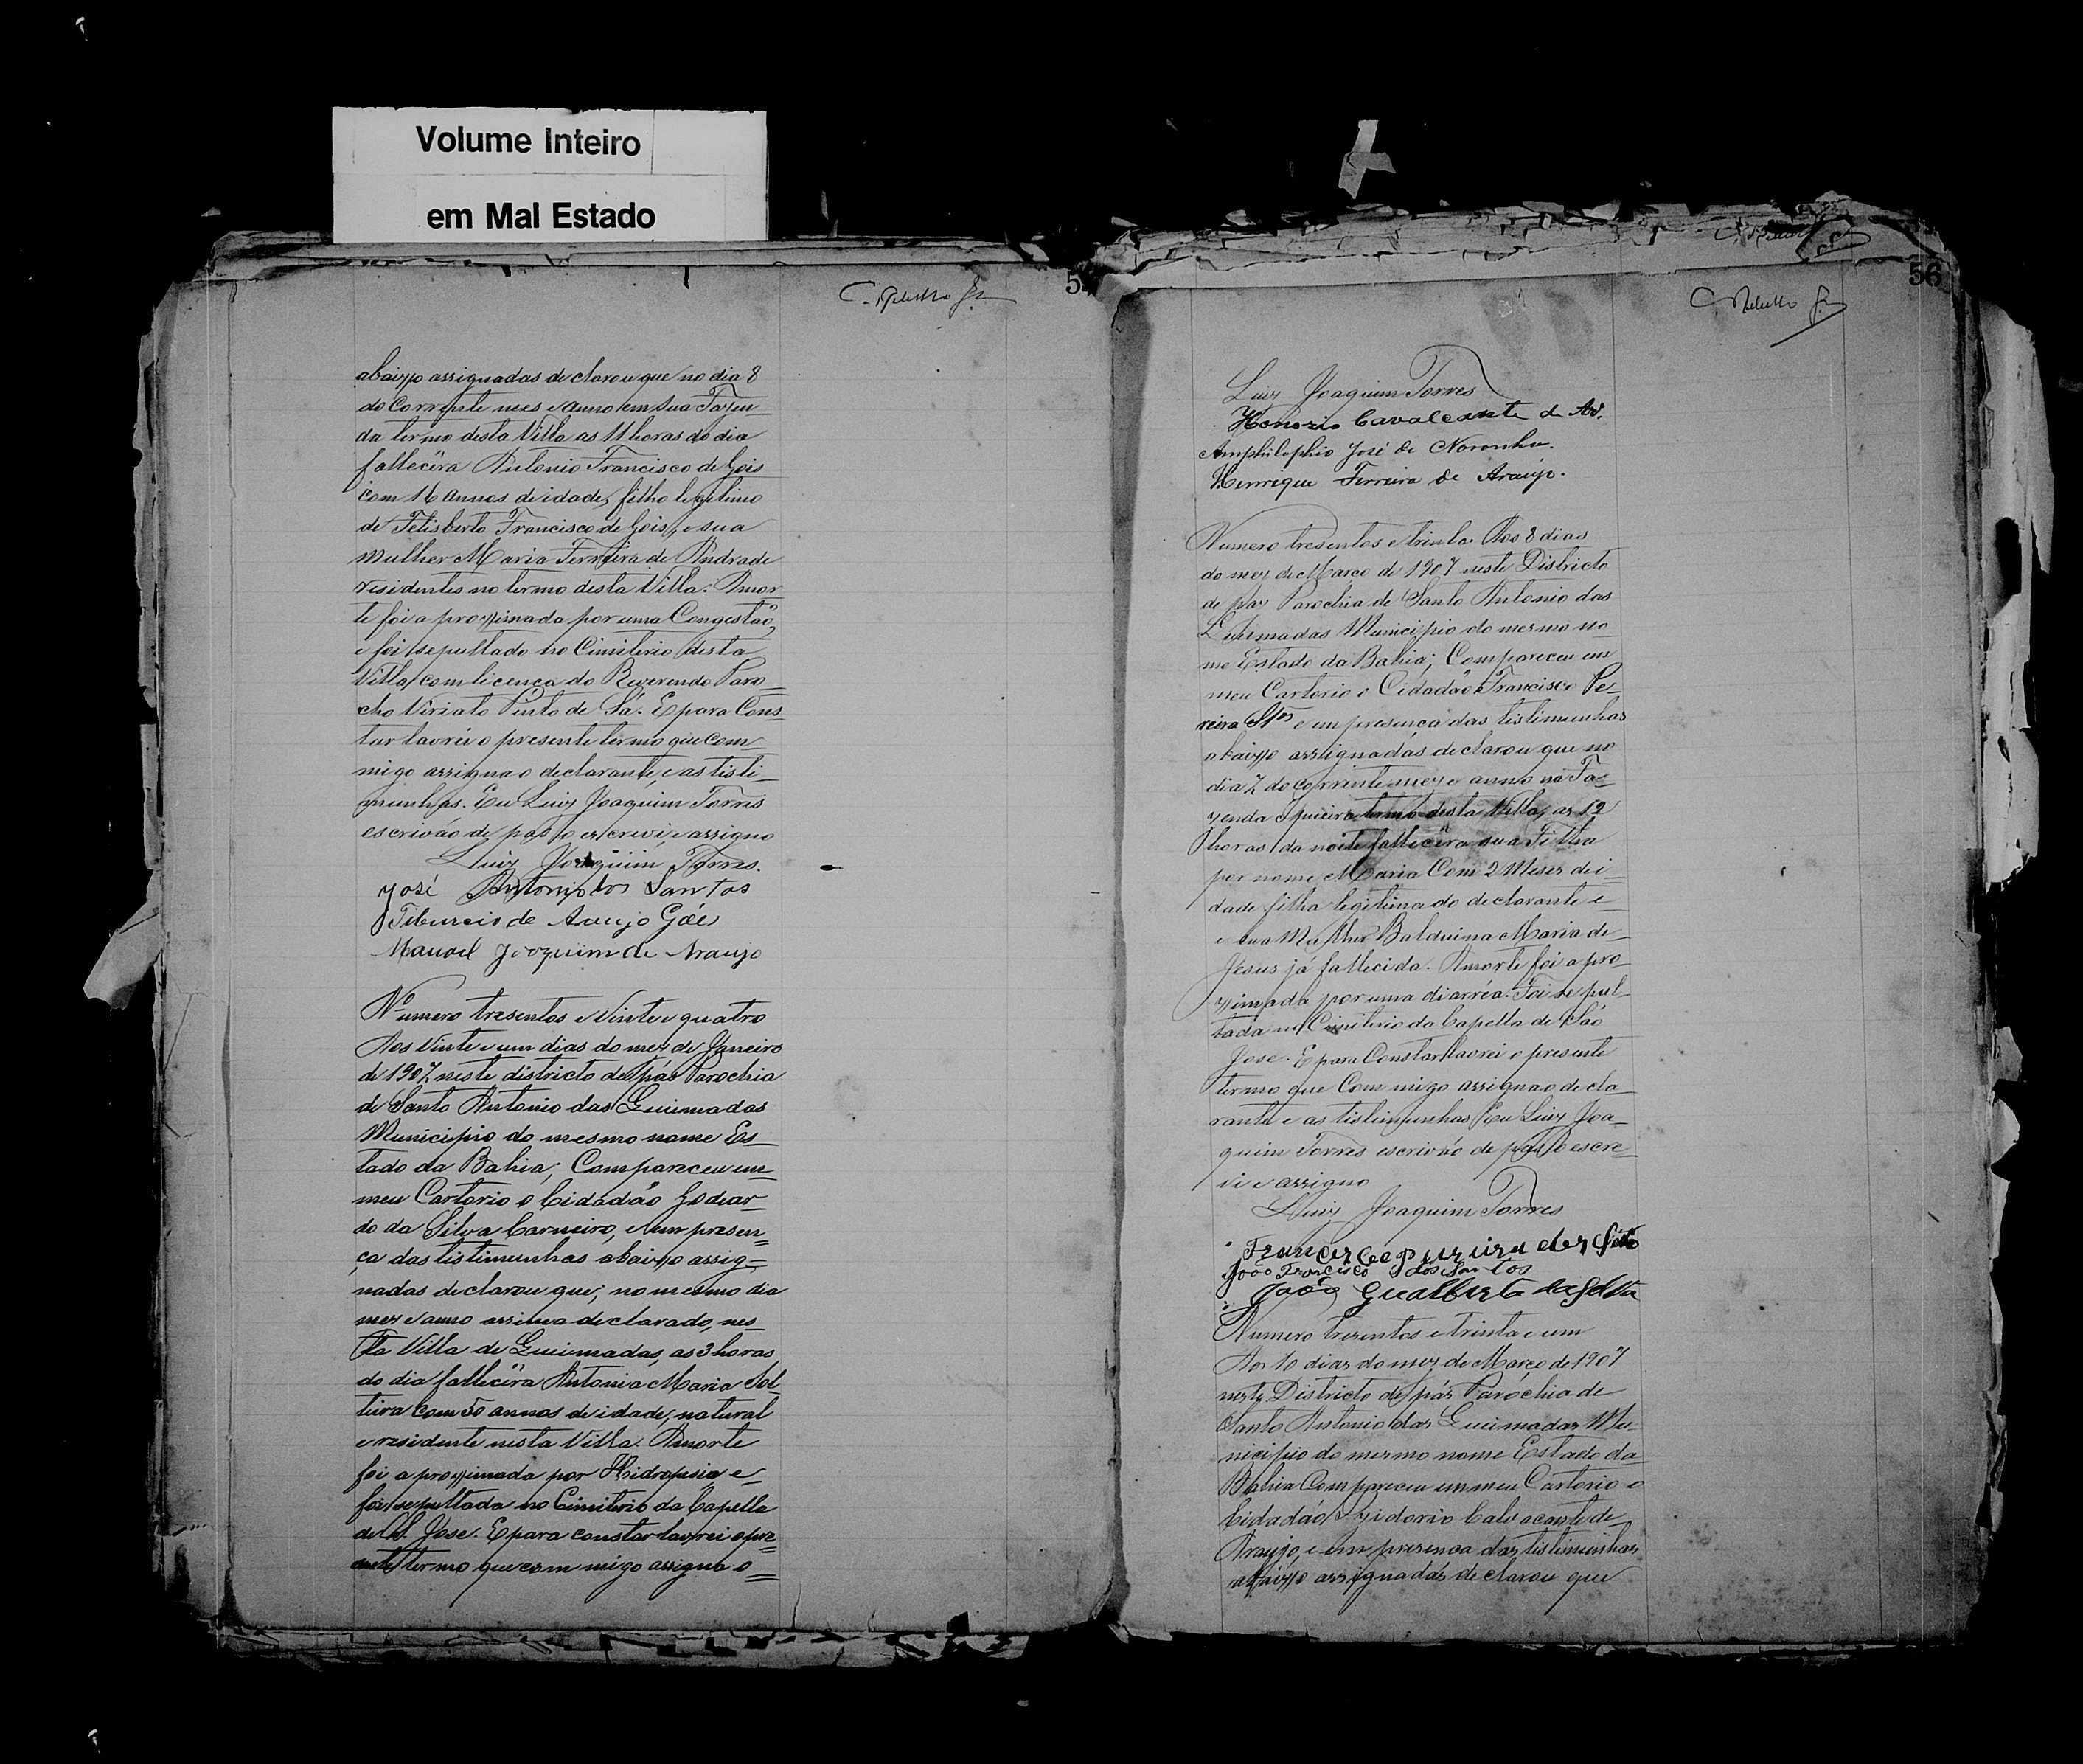 Volume Inteiro
em Mal Estado
C. Rebello Jr.
5
abaixo assignadas declarou que no dia 8
do Corrente mes e anno em sua Fazen
da termo desta Villa as 11 horas do dia
fallecêra Antonio Francisco de Gois
com 16 annos de idade, filho legitimo
de Felisberto Francisco de Gois, e sua
mulher Maria Ferreira de Andrade
residentes no termo desta Villa. Amor
te foi a proximada por uma Congestão,
e foi sepultado no Cimiterio desta
Villa, com licença do Reverendo Paro
cho Viriato Pinto de Sá. E para Cons
tar lavrei o presente termo que com
migo assigna o declarante, e as tisti
munhas. Eu Luiz Joaquim Torres
escrivão de pas o escrevi, e assigno
Luiz Joaquim Torres.
José Antonio dos Santos
Tiburcio de Araujo Góes
Manoel Joaquim de Araujo
Numero tresentos e Vinte e quatro
Aos Vinte e um dias do mez de Janeiro
de 1907, neste districto de pás Parochia
de Santo Antonio das Queimadas
Municipio do mesmo nome Es
tado da Bahia; Compareceu em
meu Cartorio o Cidadão Godear
do da Silva Carneiro, e em presen
ça das tistimunhas abaixo assig
nadas declarou que, no mesmo dia
mez e anno assima declarado, nes
ta Villa de Queimadas, as 3 horas
do dia fallecêra Antonia Maria Sol
teira com 50 annos de idade, natural
e residente nesta Villa. Amorte
foi a proximada por Hidropesia e
foi sepultada no Cimiterio da Capella
de S. Jose. E para constar lavrei o pre
sente termo que com migo assigna o
C. Rebello Jr.
56
Luiz Joaquim Torres
Honorio Cavalcante de Ar.
Amphilophio José de Noronha.
Henrique Ferreira de Araujo.
Numero tresentos e trinta. Aos 8 dias
do mez de Março de 1907 neste Districto
de paz Parochia de Santo Antonio das
Queimadas Municipio do mesmo no
me Estado da Bahia; Compareceu em
meu Cartorio o Cidadão Francisco Pe
reira Stos e em presença das tistimunhas
abaixo assignadas declarou que no
dia 7, do corrente mez e anno na Fa
zenda Ipueira termo desta Villa, as 12
horas da noite fallecêra sua Filha
por nome Maria Com 2 Meses de i
dade filha legitima do declarante e
e sua Mulher Balduina Maria de
Jesus já fallecida. Amorte foi a pro
ximada por uma diarréa. Foi sepul
tada no Cimiterio da Capella de São
Jose. E para Constar lavrei o presente
termo que Com migo assigna o decla
rante e as tistimunhas Eu Luiz Joa
quim Torres escrivão de pas o escre
vi e assigno
Luiz Joaquim Torres
João Francisco dos Santos
João Gualberto
Numero tresentos e trinta e um
Aos 10 dias do mez de Março de 1907
neste Districto de pás Paróchia de
Santo Antonio das Queimadas Mu
nicipio do mesmo nome Estado da
Bahia Compareceu em meu Cartorio o
Cidadão Izidorio Calvacante de
Araujo, e em presença das tistimunhas
abaixo assignadas declarou que